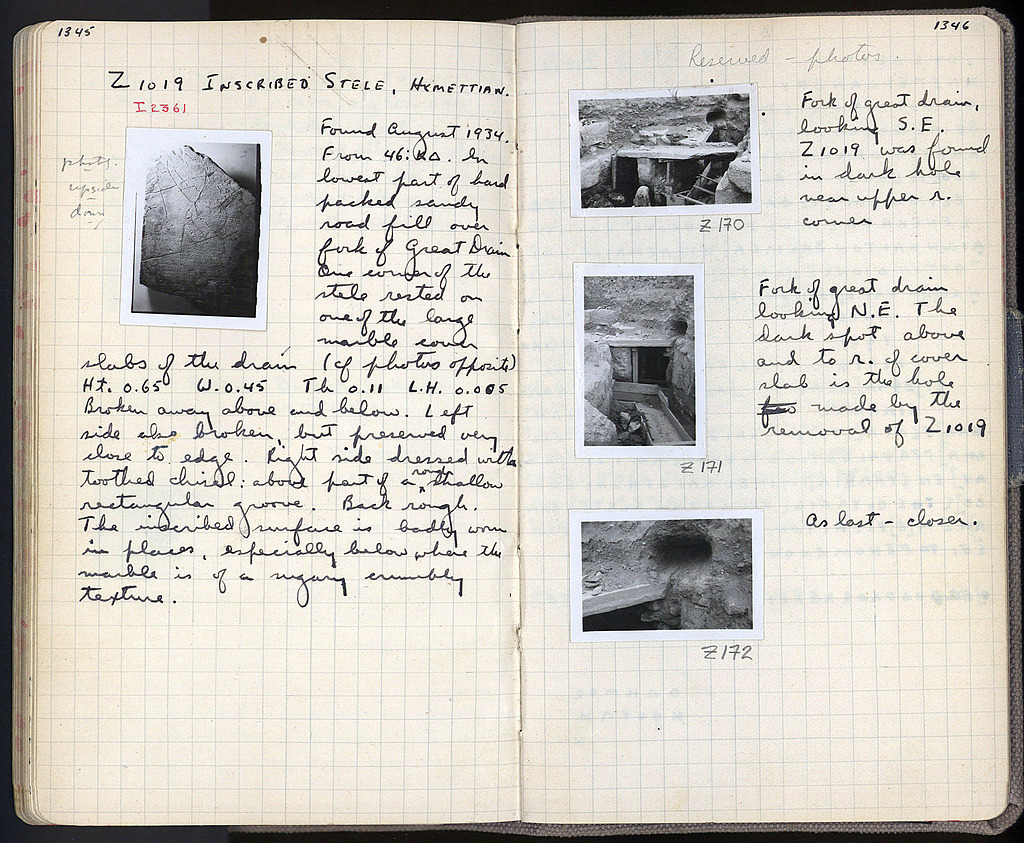 1345
Z 1019 INSCRIBED STELE, HYMETTIAN.
I 2361
photo.
upside
down
Found August 1934.
From 46:ΚΔ. In
lowest part of hard
packed sandy
road fill over
fork of Great Drain
One corner of the
stele rested on
one of the large
marble cover
slabs of the drain (cf photos opposite)
Ht. 0.65 W. 0.45 Th 0.11 L.H. 0.005
Broken away above and below. Left
side also broken, but preserved very
close to edge. Right side dressed with a
toothed chisel: above part of a rough shallow
rectangular groove. Back rough.
The inscribed surface is badly worn
in places, especially below, where the
marble is of a sugary crumbly
texture.
1346
Reserved - photos.
Fork of great drain,
looking S.E.
Z 1019 was found
in dark hole
near upper r.
corner
Z 170
Fork of great drain
looking N.E. The
dark spot above
and to r. of cover
slab is the hole
made by the
removal of Z 1019
Z 171
As last - closer.
Z 172